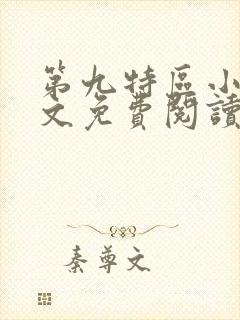 第九特區小
文免費閱讀
秦尊文